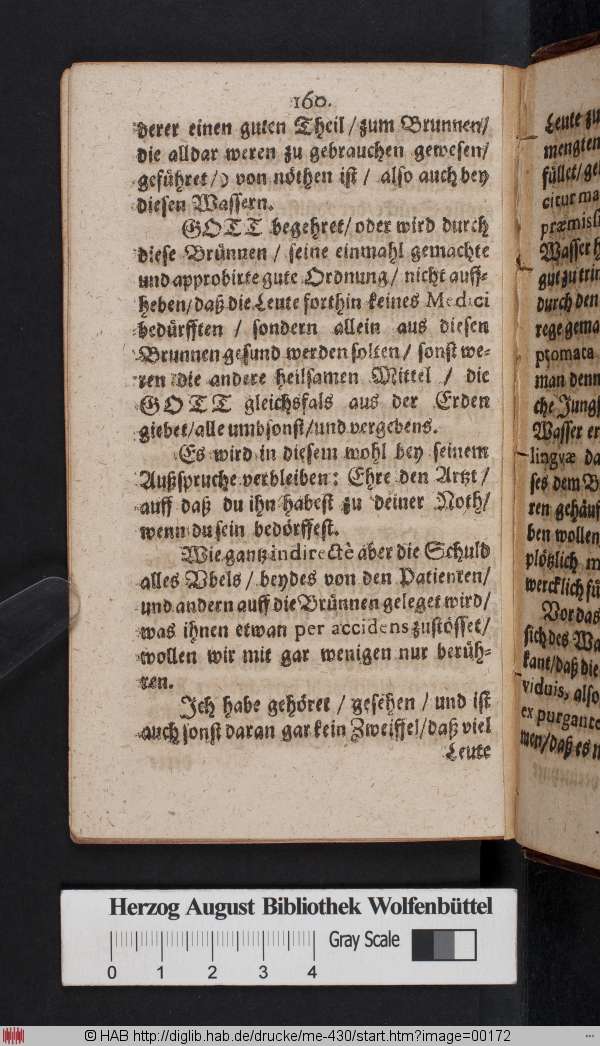 160.
derer einen guten Theil / zum Brunnen/
die alldar weren zu gebrauchen gewesen/
geführet / von nöthen ist / also auch bey
diesen Wassern.
GOTT begehret/ oder wird durch
diese Brünnen / seine einmahl gemachte
und approbirte gute Ordnung / nicht auff-
heben/ daß die Leute forthin keines Medici
bedürfften / sondern allein aus diesen
Brunnen gesund werden solten/ sonst we-
ren die andere heilsamen Mittel / die
GOTT gleichsfals aus der Erden
giebet/ alle umbsonst/ und vergebens.
Es wird in diesem wohl bey seinem
Außspruche verbleiben: Ehre den Artzt /
auff daß du ihn habest zu deiner Noth/
wenn du sein bedörffest.
Wie gantz indirectè aber die Schuld
alles Vbels / beydes von den Patienten/
und andern auff die Brünnen geleget wird/
was ihnen etwan per accidens zustösset/
wollen wir mit gar wenigen nur berüh-
ren.
Ich habe gehöret / gesehen / und ist
auch sonst daran gar kein Zweiffel/ daß viel
Leute
Leute zu
mengten
füllet/ ge
citur ma
præmissi
Wasser h
gut zu trin
durch den
rege gema
ptomata
man denn
che Jungf
Wasser er
lingvæ da
ses dem B
ren gehäuf
ben wollen
plötzlich m
wercklich fü
Vor das
sich des Wa
kant/ daß die
viduis, also
ex purgante
men/ daß es n
Herzog August Bibliothek Wolfenbüttel
Gray Scale
0 1 2 3 4
© HAB http://diglib.hab.de/drucke/me-430/start.htm?image=00172